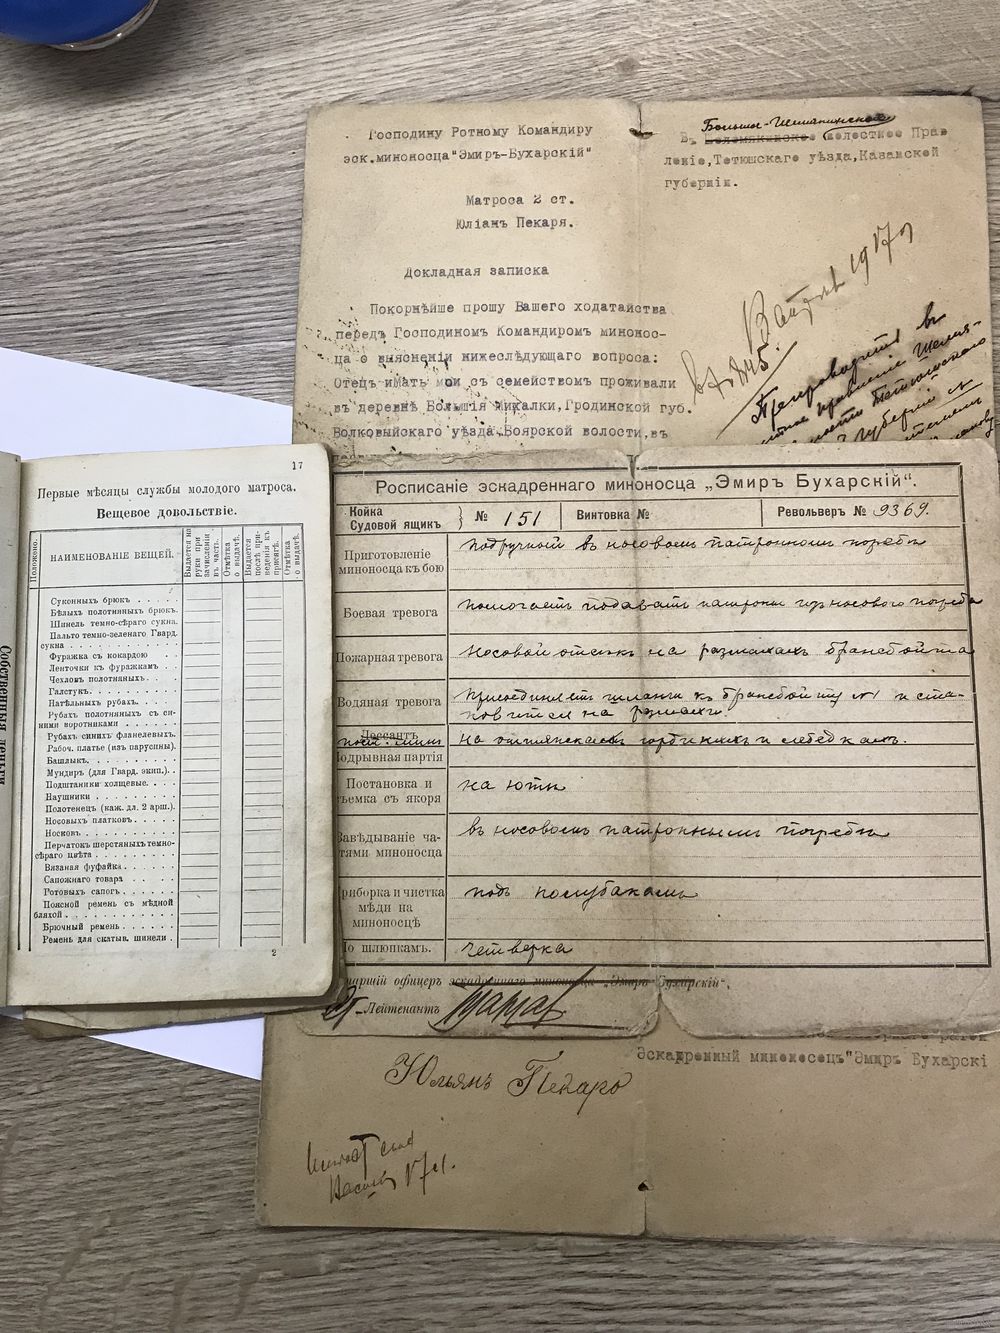 Господину Ротному Командиру
эск.миноносца"Эмиръ-Бухарскій"
Матроса 2 ст.
Юліанъ Пекаря.
Докладная записка
Покорнѣйше прошу Вашего ходатайства
передъ Господиномъ Командиромъ минонос-
ца о выясненіи нижеслѣдующаго вопроса:
Отецъ и мать мои съ семействомъ проживали
въ деревнѣ Большія Михалки, Гродинской губ.
Волковыйскаго уѣзда, Боярской волости, въ
Больше-
Въ волостное Прав
леніе, Тетюшскаго уѣзда, Казанской
губерніи.
1917 г
Препроводить в
губерніи
17
Первые мѣсяцы службы молодого матроса.
Вещевое довольствіе.
Положено.
НАИМЕНОВАНІЕ ВЕЩЕЙ.
Выдается на руки при зачисленіи въ часть.
Отмѣтка о выдачѣ.
Выдается послѣ при- веденія къ присягѣ.
Отмѣтка о выдачѣ.
Суконныхъ брюкъ
Бѣлыхъ полотняныхъ брюкъ.
Шинель темно-сѣраго сукна.
Пальто темно-зеленаго Гвард.
сукна
Фуражка съ кокардою
Ленточки къ фуражкамъ
Чехловъ полотняныхъ.
Галстукъ.
Натѣльныхъ рубахъ.
Рубахъ полотняныхъ съ си-
ними воротниками
Рубахъ синихъ фланелевыхъ.
Рабоч. платье (изъ парусины).
Башлыкъ.
Мундиръ (для Гвард. экип.).
Подштаники холщевые.
Наушники
Полотенецъ (каж. дл. 2 арш.).
Носовыхъ платковъ.
Носковъ.
Перчатокъ шерстяныхъ темно-
сѣраго цвѣта
Вязаная фуфайка.
Сапожнаго товара
Ротовыхъ сапогъ.
Поясной ремень съ мѣдной
бляхой
Брючный ремень
Ремень для скатыв. шинели
2
Собственныя деньги
Росписаніе эскадреннаго миноносца „Эмиръ Бухарскій".
Койка
Судовой ящикъ
№ 151
Винтовка №
Револьверъ № 9369.
Приготовленіе
миноносца къ бою
подручный въ носовомъ патронномъ погребѣ
Боевая тревога
помогаетъ подавать патроны изъ носового погреба
Пожарная тревога
Носовой отсекъ на размахахъ брансбойта
Водяная тревога
присоединяетъ шланги къ брансбойту №1 и ста-
новится на размахи.
Дессантъ
Подрывная партія
на
Постановка и
съемка съ якоря
на ютѣ
Завѣдываніе ча-
стями миноносца
въ носовомъ патронномъ погребѣ
Приборка и чистка
мѣди на
миноносцѣ
подъ полубакомъ
По шлюпкамъ.
четверка
Старшій офицеръ эскадреннаго миноносца „Эмиръ Бухарскій".
Лейтенантъ
Эскадренный миноносецъ"Эмиръ Бухарскі
Юльянъ Пекаръ